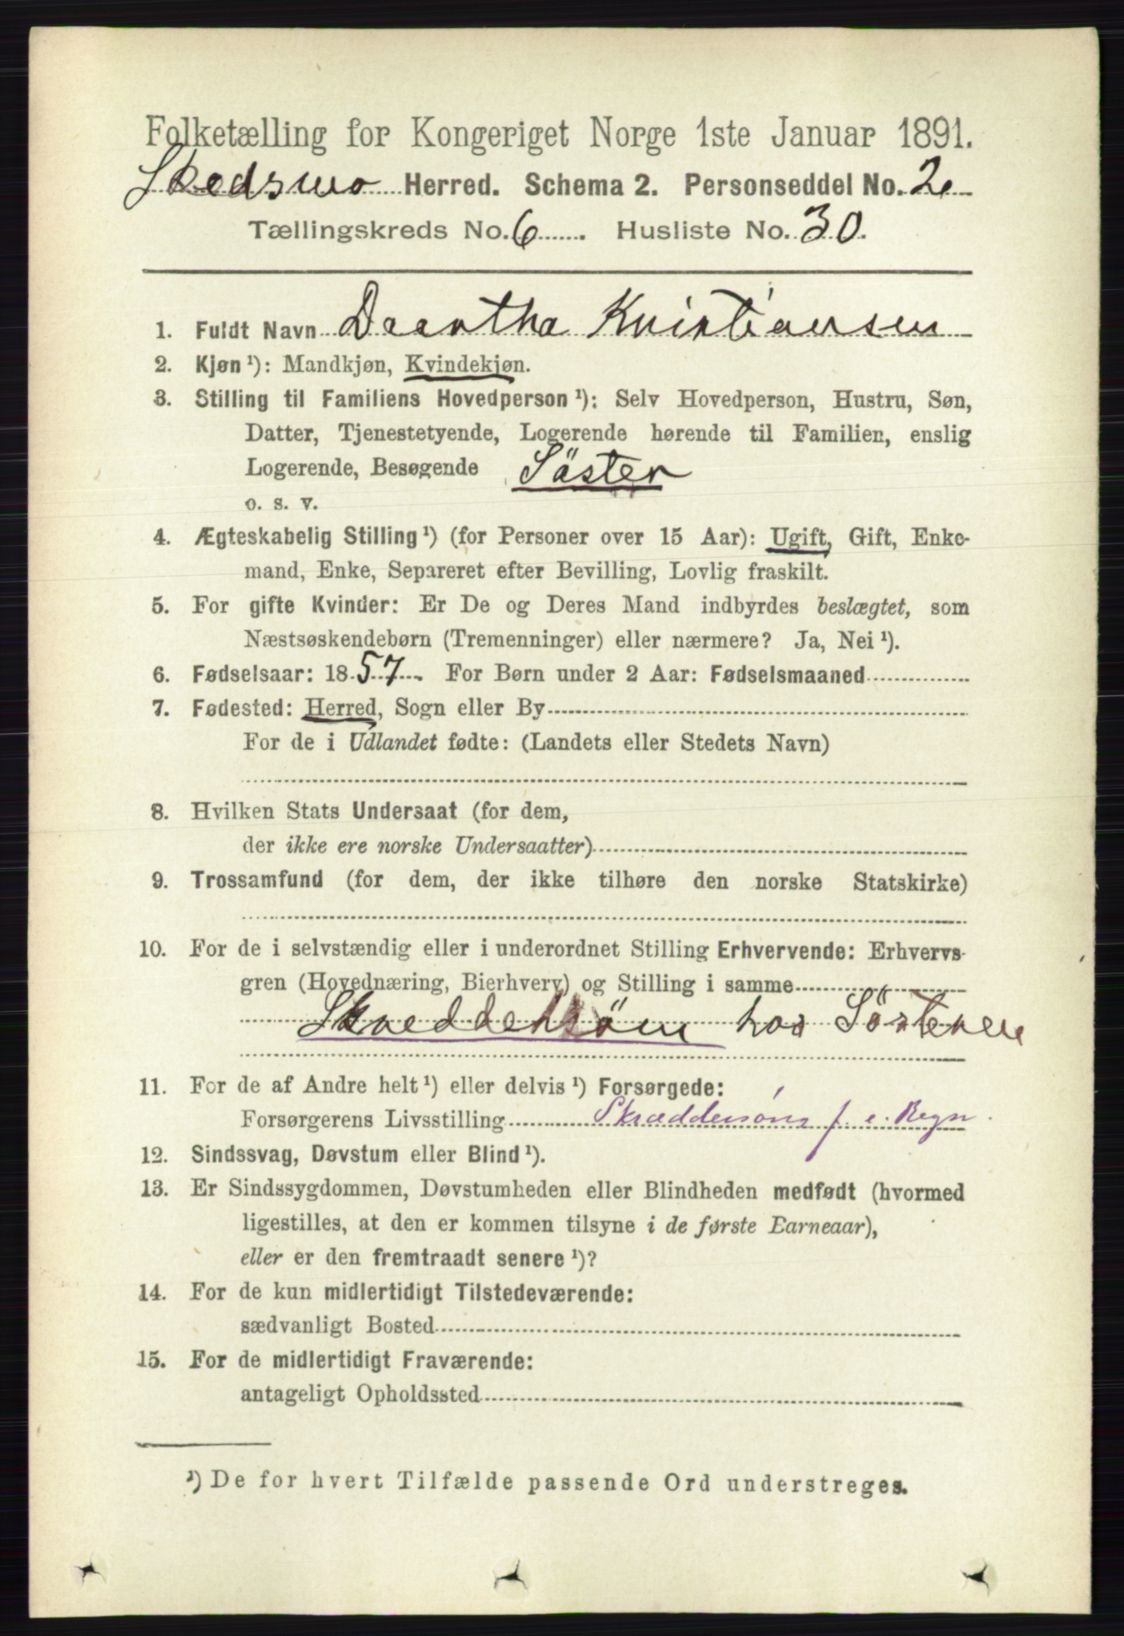 Folketælling for Kongeriget Norge 1ste Januar 1891.
Skedsmo Herred. Schema 2. Personseddel No. 2.
Tællingskreds No. 6 . Husliste No. 30.
1. Fuldt Navn Daartha Kristiansen
2. Kjøn ¹): Mandkjøn, Kvindekjøn.
3. Stilling til Familiens Hovedperson ¹): Selv Hovedperson, Hustru, Søn,
Datter, Tjenestetyende, Logerende hørende til Familien, enslig
Logerende, Besøgende Söster
o. s. v.
4. Ægteskabelig Stilling ¹) (for Personer over 15 Aar): Ugift, Gift, Enke-
mand, Enke, Separeret efter Bevilling, Lovlig fraskilt.
5. For gifte Kvinder: Er De og Deres Mand indbyrdes beslægtet, som
Næstsøskendebørn (Tremenninger) eller nærmere? Ja, Nei ¹).
6. Fødselsaar: 1857. For Børn under 2 Aar: Fødselsmaaned
7. Fødested: Herred, Sogn eller By
For de i Udlandet fødte: (Landets eller Stedets Navn)
8. Hvilken Stats Undersaat (for dem,
der ikke ere norske Undersaatter)
9. Trossamfund (for dem, der ikke tilhøre den norske Statskirke)
10. For de i selvstændig eller i underordnet Stilling Erhvervende: Erhvervs-
gren (Hovednæring, Bierhverv) og Stilling i samme
Skreddersöm hos Sösteren
11. For de af Andre helt ¹) eller delvis ¹) Forsørgede:
Forsørgerens Livsstilling Skræddersöm f. e. Regn.
12. Sindssvag, Døvstum eller Blind ¹).
13. Er Sindssygdommen, Døvstumheden eller Blindheden medfødt (hvormed
ligestilles, at den er kommen tilsyne i de første Barneaar),
eller er den fremtraadt senere ¹)?
14. For de kun midlertidigt Tilstedeværende:
sædvanligt Bosted
15. For de midlertidigt Fraværende:
antageligt Opholdssted
¹) De for hvert Tilfælde passende Ord understreges.